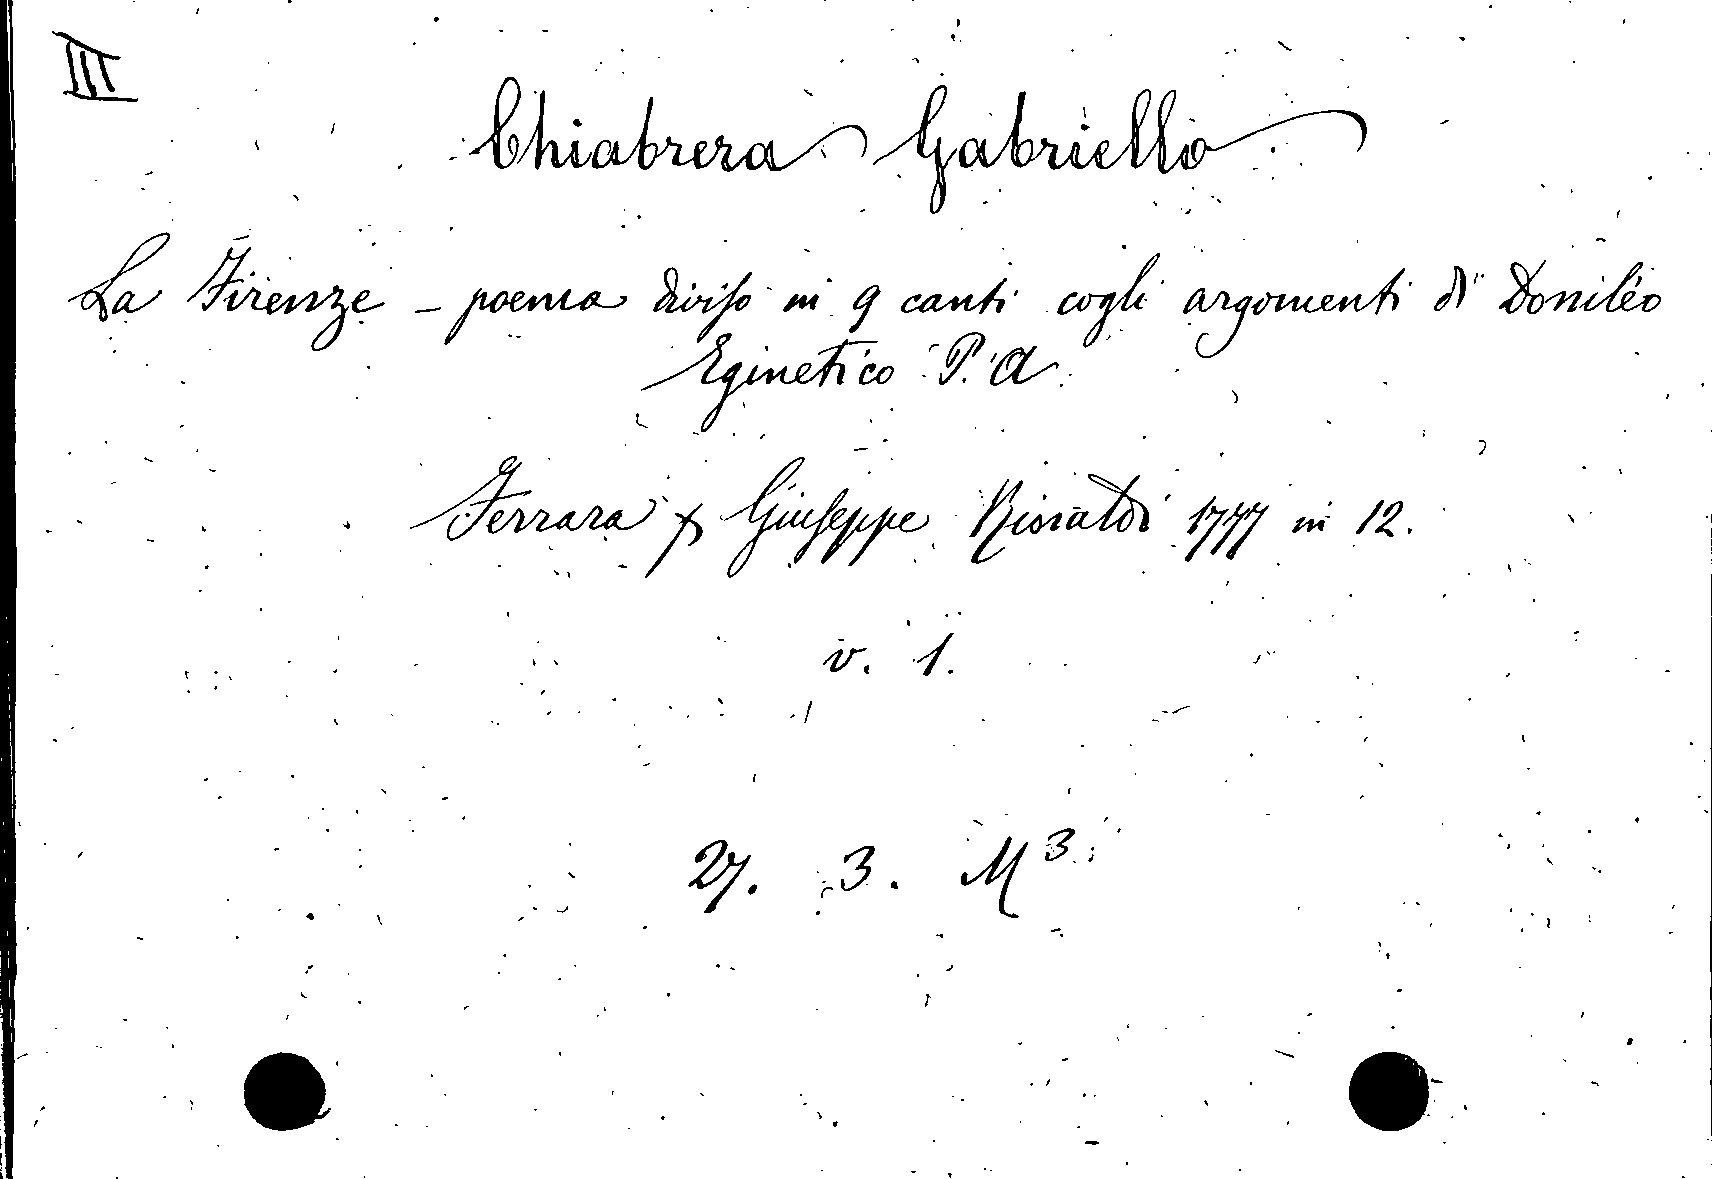 III
Chiabrera Gabriello
La Firenze - poema diviso in 9 canti cogli argomenti di Doniléo
Eginetico P. A
Ferrara x Giuseppe Rinaldi 1777 in 12.
v. 1.
27. 3. M3